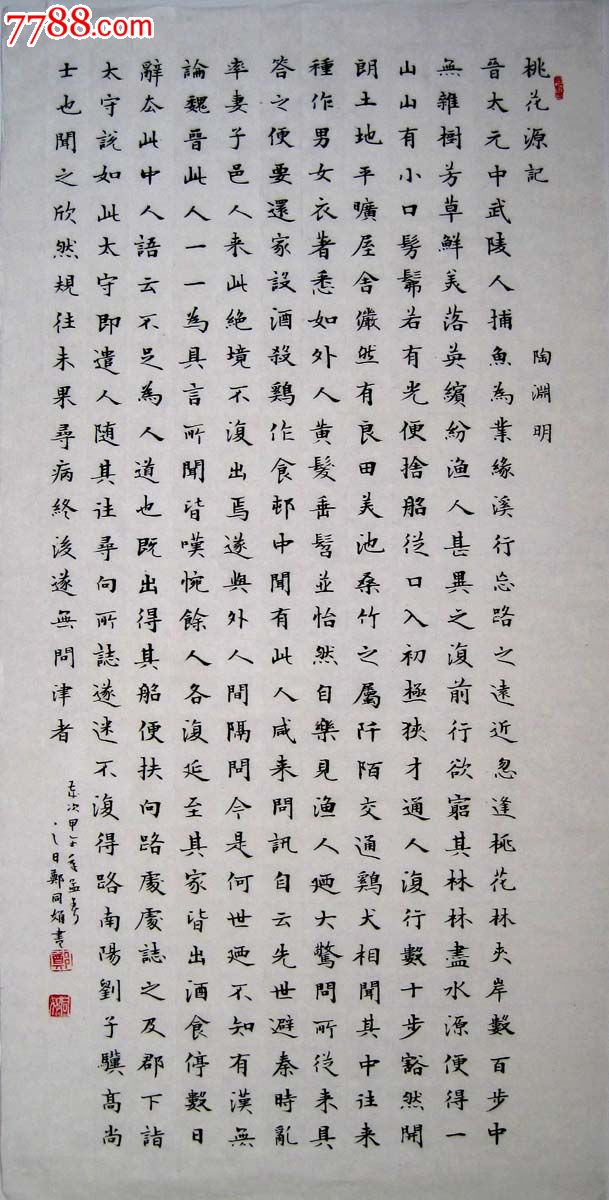 7788.com
桃花源記 陶淵明
晉太元中武陵人捕魚為業緣溪行忘路之遠近忽逢桃花林夾岸數百步中
無雜樹芳草鮮美落英繽紛漁人甚異之復前行欲窮其林林盡水源便得一
山山有小口髣髴若有光便捨船從口入初極狹才通人復行數十步豁然開
朗土地平曠屋舍儼然有良田美池桑竹之屬阡陌交通鷄犬相聞其中往来
種作男女衣著悉如外人黃髮垂髫並怡然自樂見漁人迺大驚問所從来具
答之便要還家設酒殺鷄作食邨中聞有此人咸来問訊自云先世避秦時亂
率妻子邑人来此絕境不復出焉遂與外人間隔問今是何世迺不知有漢無
論魏晉此人一一為具言所聞皆嘆惋餘人各復延至其家皆出酒食停數日
辭去此中人語云不足為人道也既出得其船便扶向路處處誌之及郡下詣
太守說如此太守即遣人随其往尋向所誌遂迷不復得路南陽劉子驥高尚
士也聞之欣然規往未果尋病終後遂無問津者
次甲午年孟春
日鄭同娟書